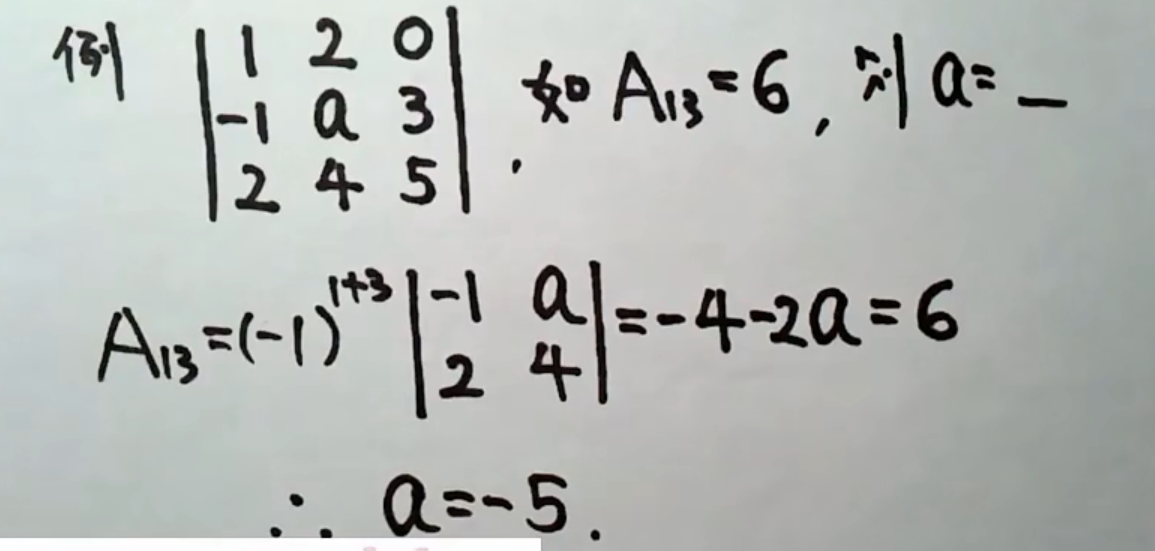 例 | 1 2 0 |
| -1 a 3 | , 如 A₁₃=6, 则 a= _
| 2 4 5 |
A₁₃=(-1)¹⁺³ | -1 a |
| 2 4 | =-4-2a=6
∴ a=-5.